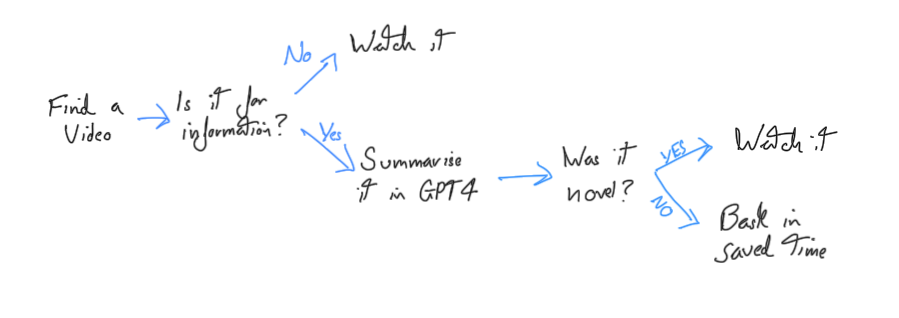 Find a
Video
Is it for
information?
No
Watch it
Yes
Summarise
it in GPT4
Was it
novel?
YES
Watch it
NO
Bask in
Saved Time